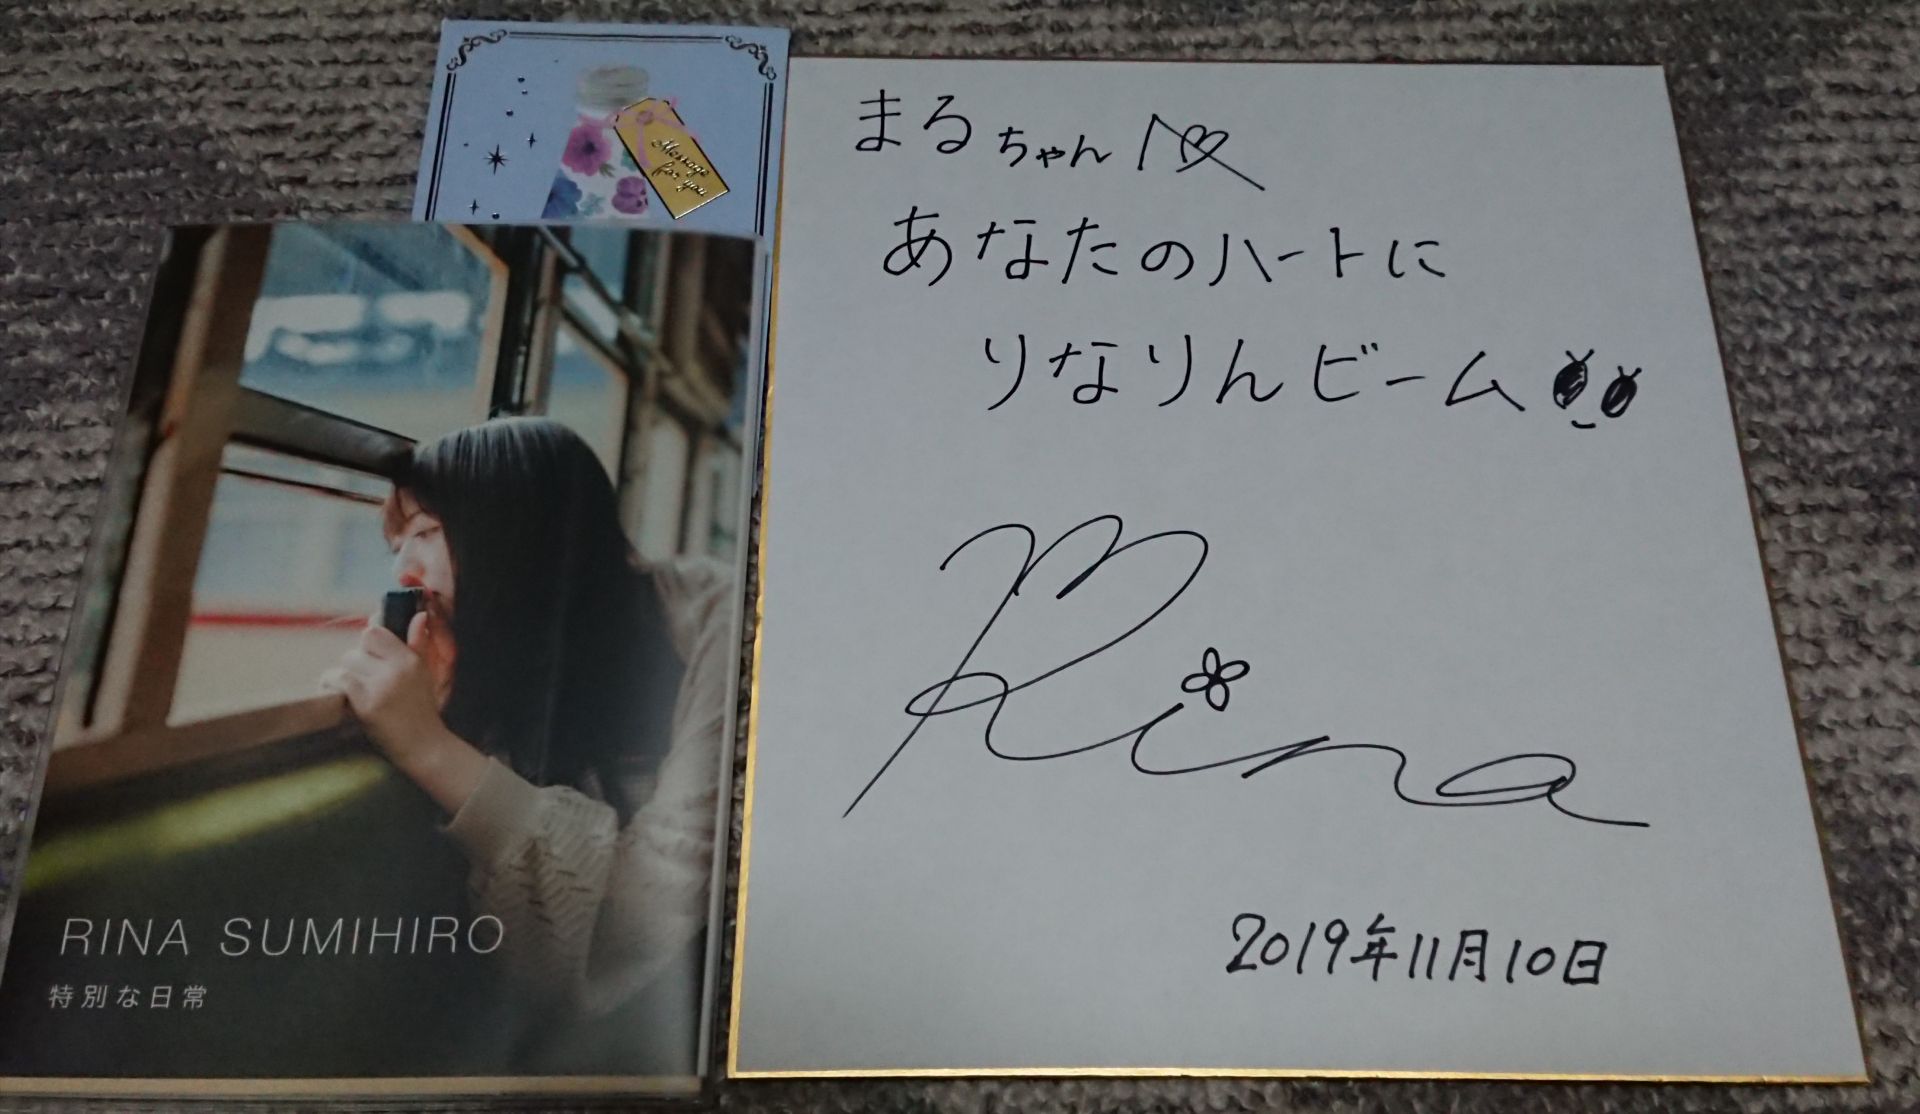 Message
for you
RINA SUMIHIRO
特別な日常
まるちゃんへ
あなたのハートに
りなりんビーム
Rina
2019年11月10日